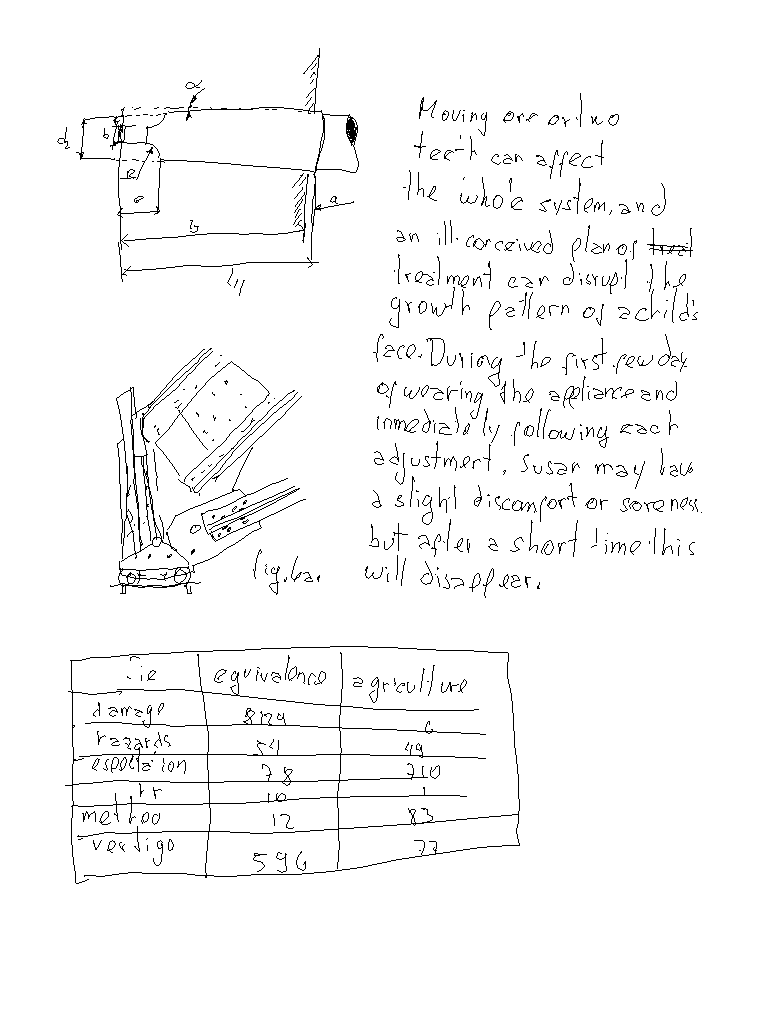 α
d2
b
R
e
a
l3
l4
Moving one or two
teeth can affect
the whole system, and
an ill-conceived plan of
treatment can disrupt the
growth pattern of a child's
face. During the first few day
of wearing the appliance and
immediately following each
adjustment, Susan may have
a slight discomfort or soreness,
but after a short time this
will disappear.
Fig. 6a.
equivalence agriculture
damage 8129 6
hazards 54 49
78 710
10 1
12 83
vertigo 596 77